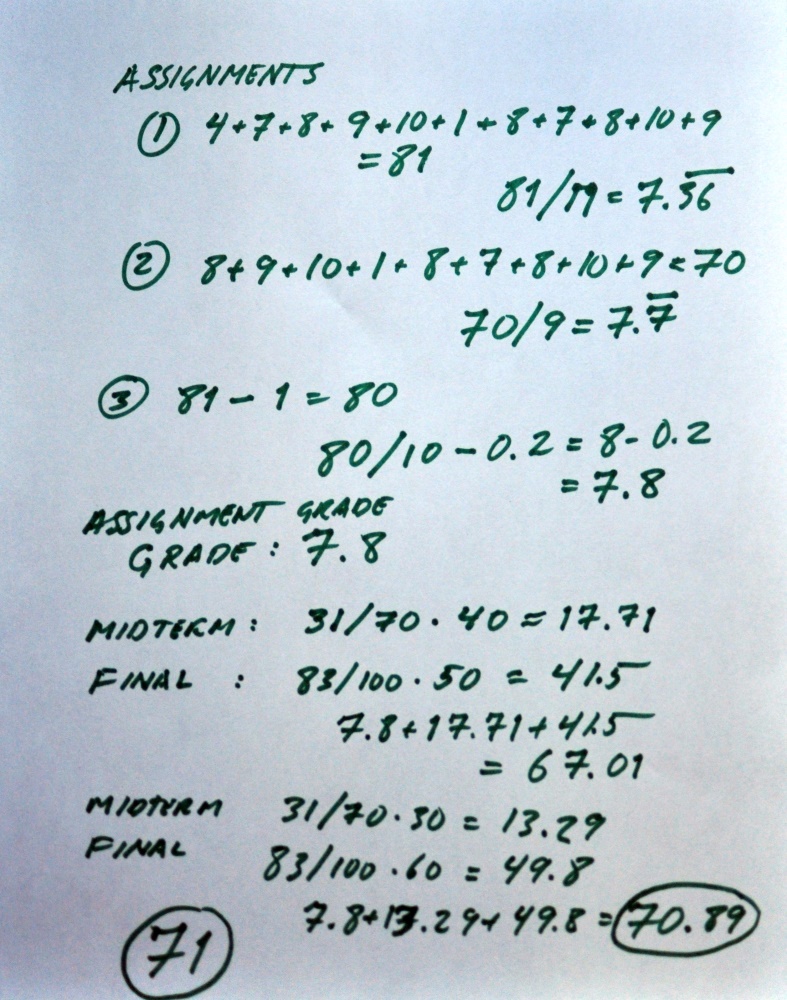 ASSIGNMENTS
① 4+7+8+9+10+1+8+7+8+10+9
=81
81/11 = 7.3̅6̅
② 8+9+10+1+8+7+8+10+9=70
70/9 = 7.7̅
③ 81 - 1 = 80
80/10 - 0.2 = 8 - 0.2
= 7.8
ASSIGNMENT GRADE
GRADE: 7.8
MIDTERM: 31/70 · 40 ≈ 17.71
FINAL : 83/100 · 50 = 41.5
7.8+17.71+41.5
= 67.01
MIDTERM 31/70 · 30 = 13.29
FINAL 83/100 · 60 = 49.8
7.8+13.29+49.8 = 70.89
71